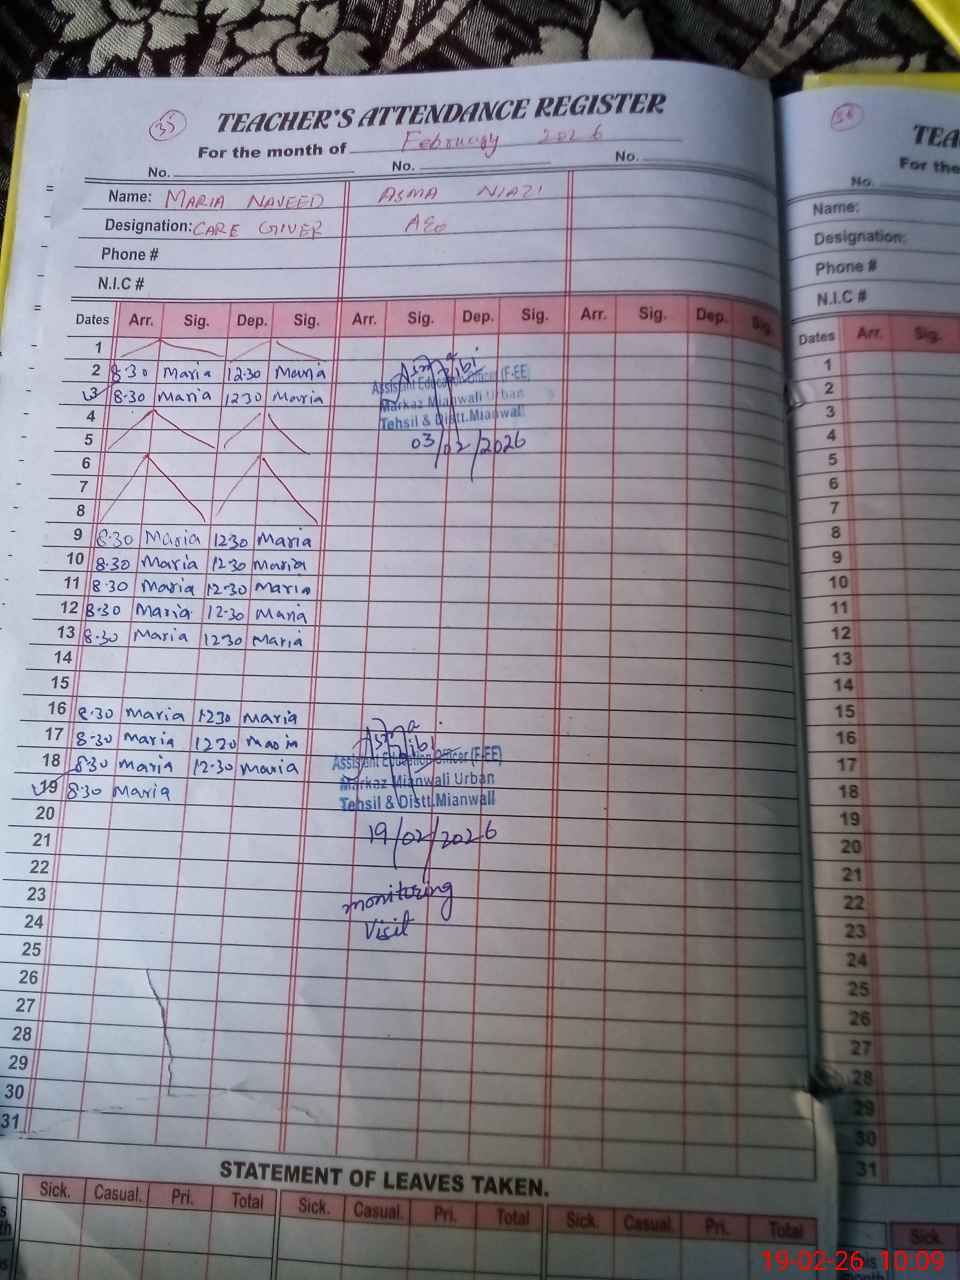 35
TEACHER'S ATTENDANCE REGISTER
For the month of February 2026
No. No. No.
Name: MARIA NAVEED ASMA NIAZI
Designation: CARE GIVER AEO
Phone #
N.I.C #
Dates Arr. Sig. Dep. Sig. Arr. Sig. Dep. Sig. Arr. Sig. Dep. Sig.
1
2 8:30 Maria 12:30 Maria
3 8:30 Maria 12:30 Maria
4
5
6
7
8
9 8:30 Maria 12:30 Maria
10 8:30 Maria 12:30 Maria
11 8:30 Maria 12:30 Maria
12 8:30 Maria 12:30 Maria
13 8:30 Maria 12:30 Maria
14
15
16 8:30 Maria 12:30 Maria
17 8:30 Maria 12:30 Maria
18 8:30 Maria 12:30 Maria
19 8:30 Maria
20
21
22
23
24
25
26
27
28
29
30
31
Asma Bibi
Assistant Education Officer (F-EE)
Markaz Mianwali Urban
Tehsil & Distt.Mianwali
03/02/2026
Asma Bibi
Assistant Education Officer (F-EE)
Markaz Mianwali Urban
Tehsil & Distt.Mianwali
19/02/2026
monitoring
Visit
STATEMENT OF LEAVES TAKEN.
Sick. Casual. Pri. Total Sick. Casual. Pri. Total Sick. Casual. Pri. Total
TEA
For the
No.
Name:
Designation:
Phone #
N.I.C #
Dates Arr. Sig.
1
2
3
4
5
6
7
8
9
10
11
12
13
14
15
16
17
18
19
20
21
22
23
24
25
26
27
28
29
30
31
Sick.
19-02-26 10:09